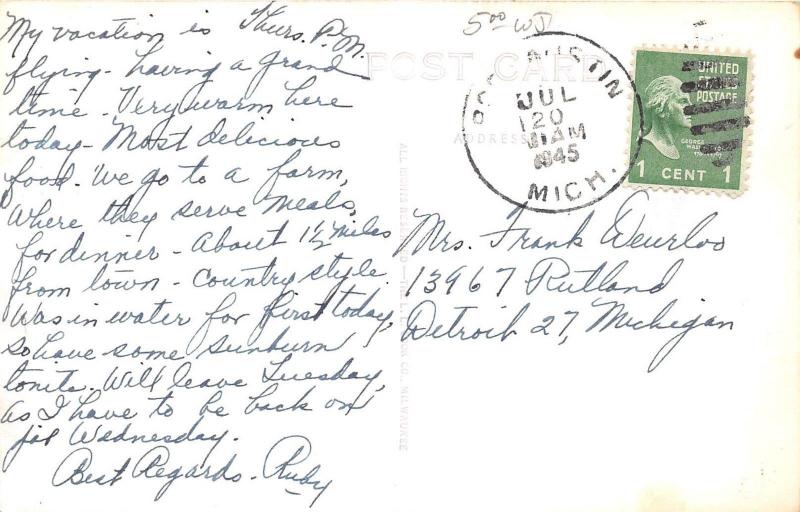 Thurs. P.M.
My vacation is
flying - having a grand
time. Very warm here
today - Most delicious
food. We go to a farm,
where they serve meals,
for dinner - About 1½ miles
from town - Country style
Was in water for first today,
so have some sunburn
tonite. Will leave Tuesday,
as I have to be back on
job Wednesday.
Best Regards - Ruby
5.00
POST CARD
ADDRESS
PORT AUSTIN
JUL
20
AM
1945
MICH.
UNITED
POSTAGE
GEORGE
1 CENT 1
Mrs. Frank Weurloo
13967 Rutland
Detroit 27, Michigan
CO., MILWAUKEE